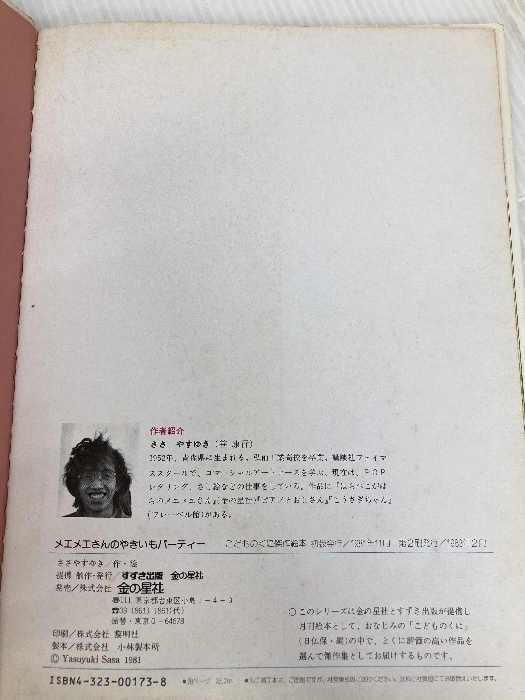 作者紹介
ささ やすゆき
1952年、青森県に生まれる。弘前工業高校を卒業、講談社フェイマ
ススクールで、コマーシャルアート・コースを学ぶ。現在は、POP
レタリング、さし絵などの仕事をしている。作品に『はらぺこがは
らのメエメエさん』(金の星社)『ピアノとおじさん』『こうさぎちゃん』
(フレーベル館)がある。
メエメエさんのやきいもパーティー こどものくに傑作絵本 初版発行/1981年11月 第2刷発行/1983年2月
ささやすゆき/作・絵
提携 制作・発行/すずき出版 金の星社
発売/株式会社 金の星社
〒111 東京都台東区小島1-4-3
☎03(861)1861(代)
振替・東京0-64678
印刷/株式会社 黎明社
製本/株式会社 小林製本所
© Yasuyuki Sasa 1981
○このシリーズは金の星社とすずき出版が提携し
月刊絵本として、おなじみの「こどものくに」
(日仏保・編)の中で、とくに評価の高い作品を
選んで傑作集としてお届けするものです。
ISBN4-323-00173-8